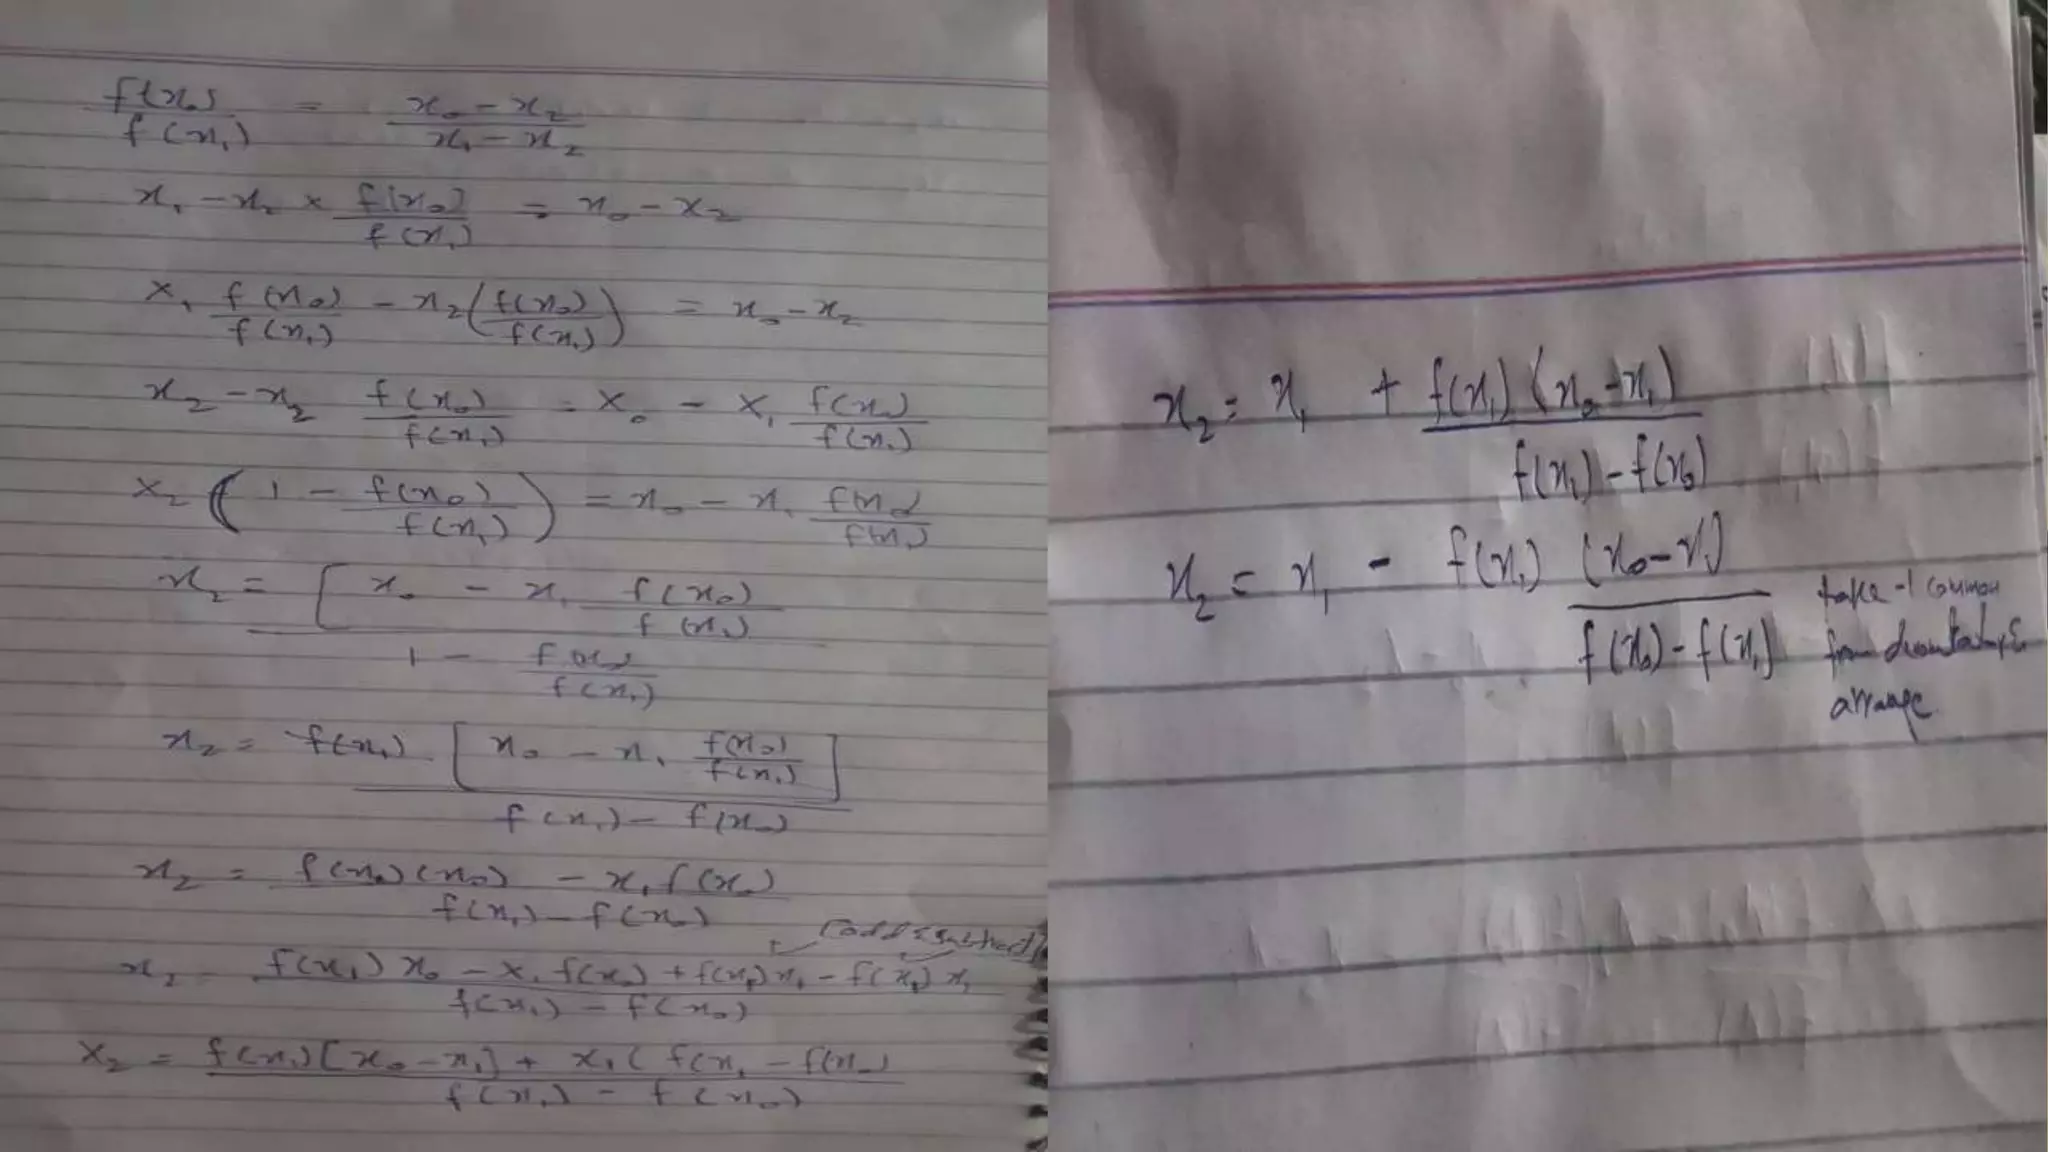 f(x₀)/f(x₁) = (x₀ - x₂)/(x₁ - x₂)
x₁ - x₂ × f(x₀)/f(x₁) = x₀ - x₂
x₁ f(x₀)/f(x₁) - x₂(f(x₀)/f(x₁)) = x₀ - x₂
x₂ - x₂ f(x₀)/f(x₁) = x₀ - x₁ f(x₀)/f(x₁)
x₂(1 - f(x₀)/f(x₁)) = x₀ - x₁ f(x₀)/f(x₁)
x₂ = [x₀ - x₁ f(x₀)/f(x₁) / 1 - f(x₀)/f(x₁)
x₂ = f(x₁) [x₀ - x₁ f(x₀)/f(x₁)] / f(x₁) - f(x₀)
x₂ = f(x₀)(x₀) - x₁f(x₀) / f(x₁) - f(x₀)
(add & subtract)
x₂ = f(x₁)x₀ - x₁f(x₀) + f(x₁)x₁ - f(x₁)x₁ / f(x₁) - f(x₀)
x₂ = f(x₁)[x₀ - x₁] + x₁(f(x₁ - f(x₀) / f(x₁) - f(x₀)
x₂ = x₁ + f(x₁)(x₀ - x₁) / f(x₁) - f(x₀)
x₂ = x₁ - f(x₁) (x₀ - x₁) / f(x₀) - f(x₁)
take -1 common
from &
arrange